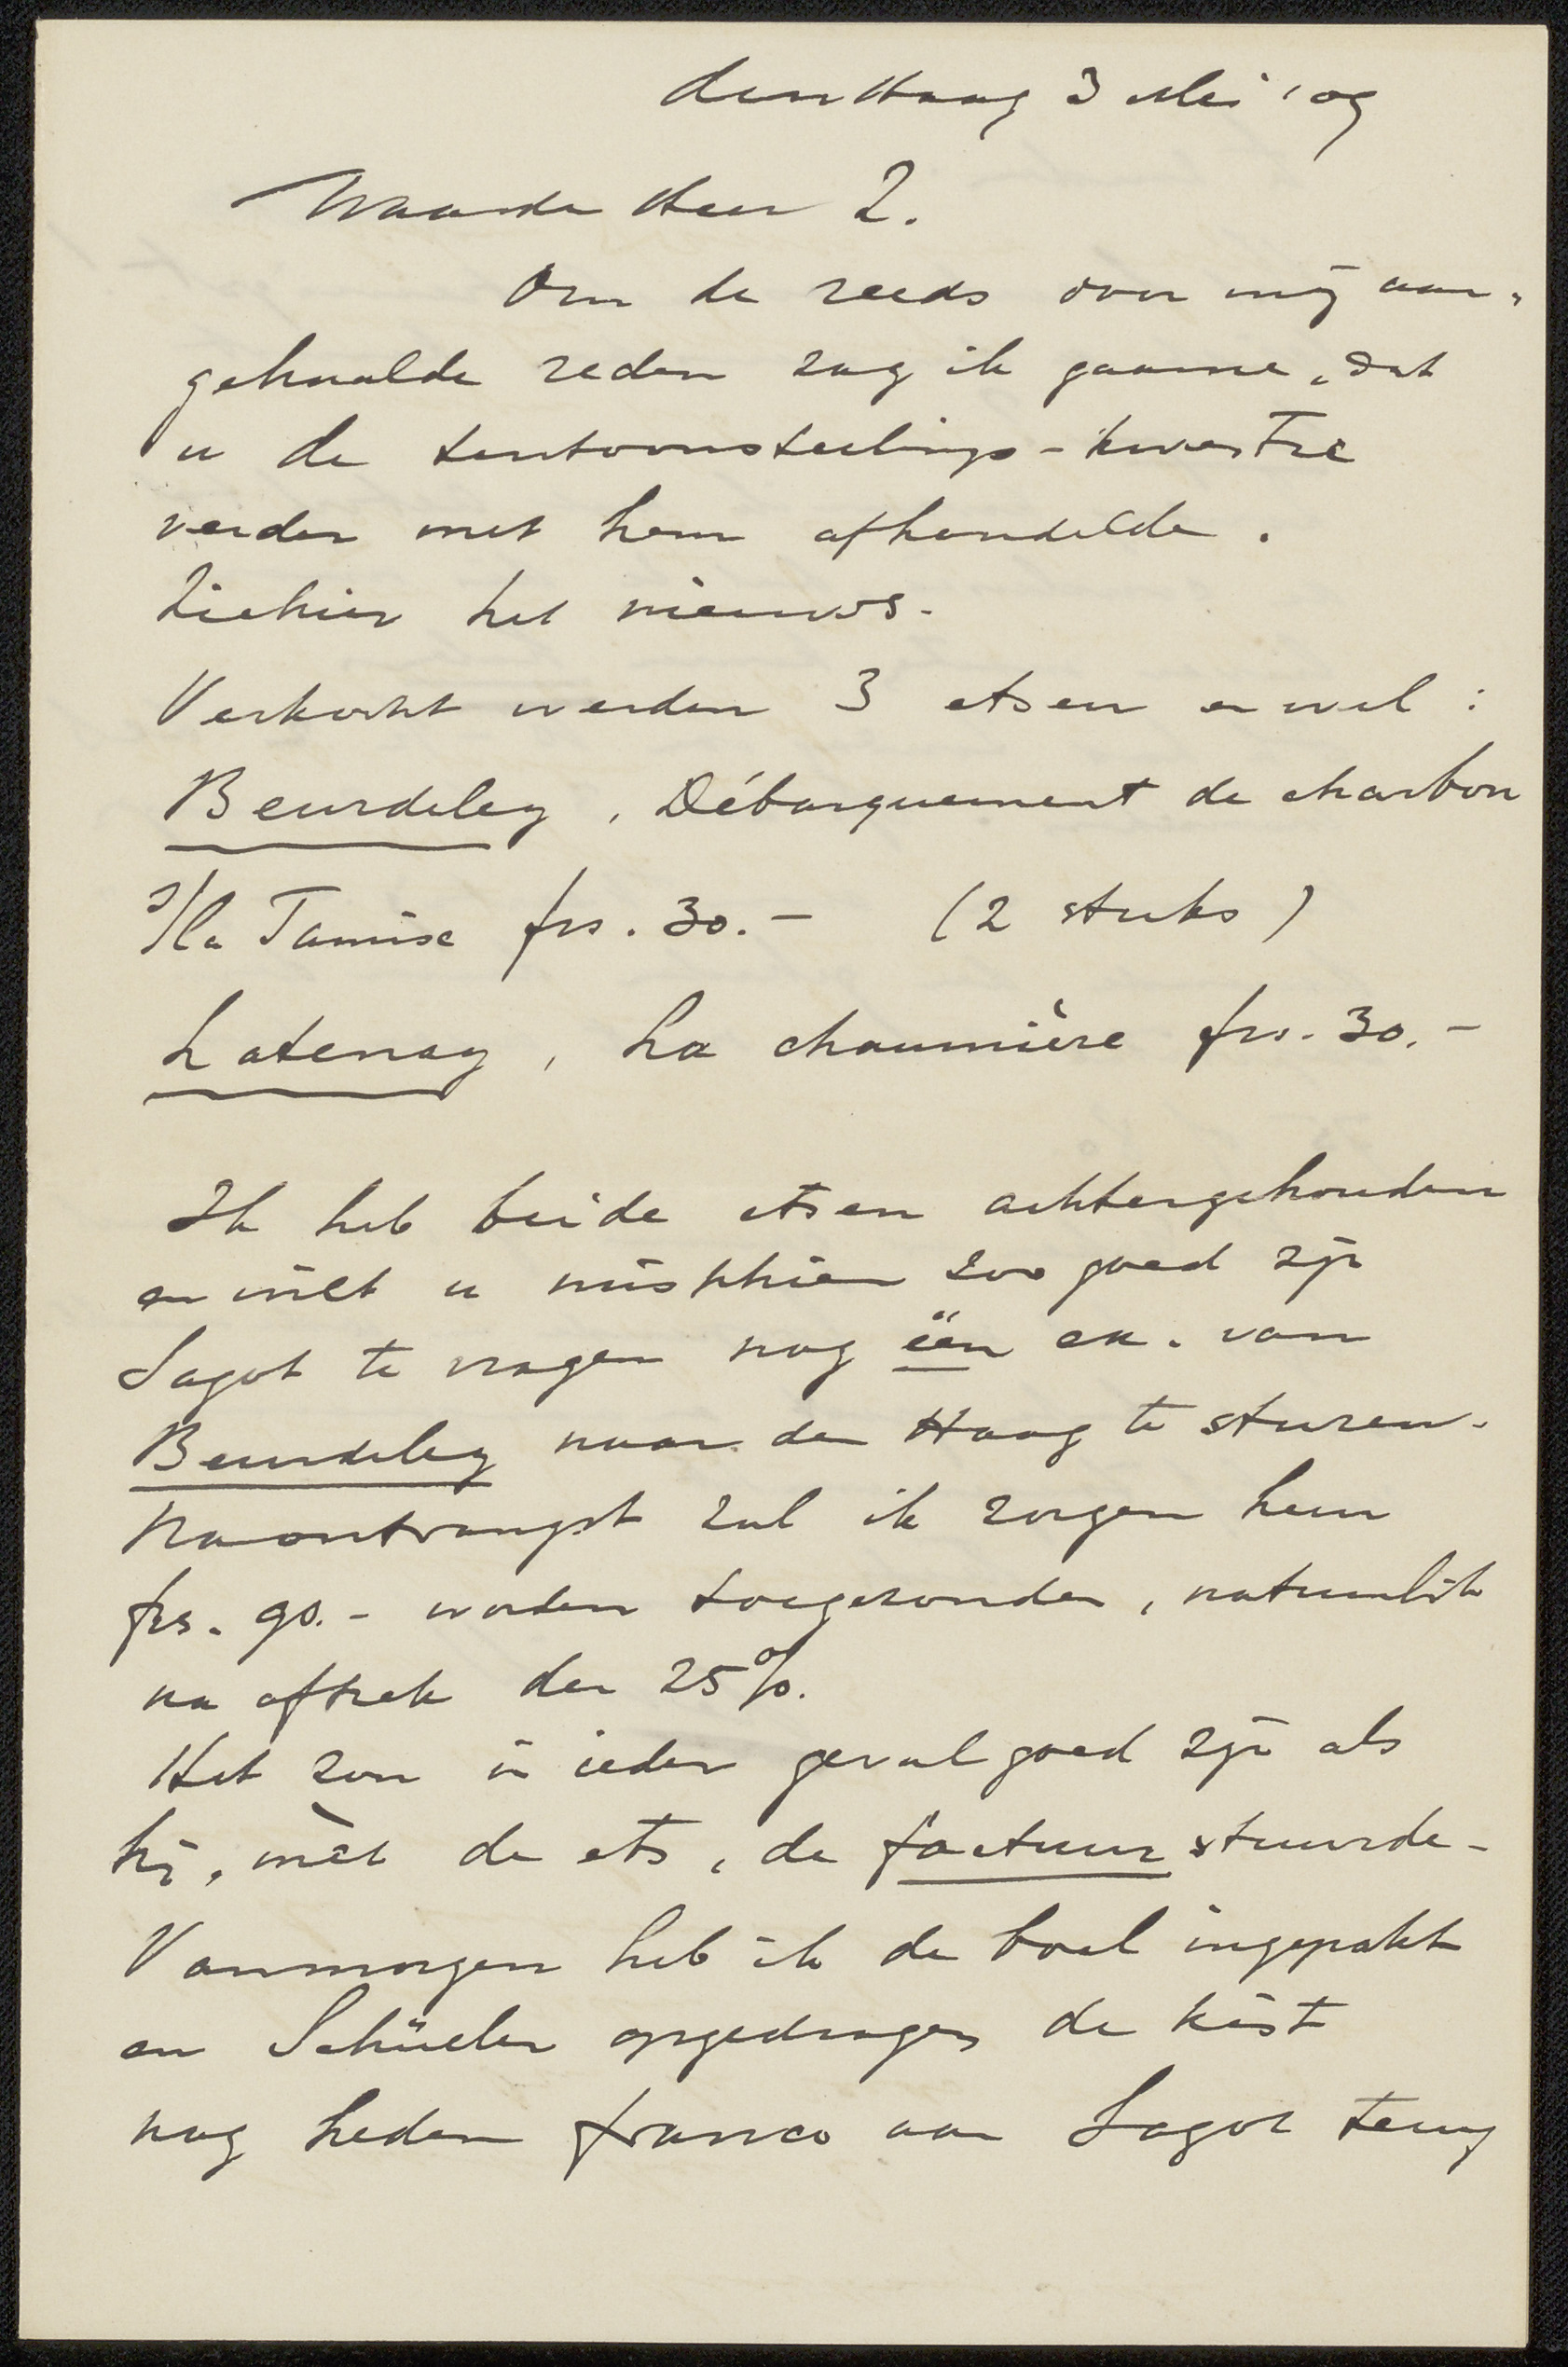 den Haag 3 Mei '09
Waarde Heer Z.
Om de reeds door mij aan-
gehaalde reden zag ik gaarne, dat
u de tentoonstellings-kwestie
verder met hem afhandelde.
Ziehier het nieuws.
Verkocht werden 3 etsen en wel:
Beurdeley, Débarquement de charbon
s/la Tamise frs. 30.- (2 stuks)
Latenay, La chaumière frs. 30.-
Ik heb beide etsen achtergehouden
en wilt u misschien zoo goed zijn
Sagot te vragen nog één ex. van
Beurdeley naar den Haag te sturen.
Na ontvangst zal ik zorgen hem
frs. 90.- worden toegezonden, natuurlijk
na aftrek der 25%.
Het zou in ieder geval goed zijn als
hij, mèt de ets, de factuur stuurde.
Vanmorgen heb ik de boel ingepakt
en Schüeler opgedragen de kist
nog heden franco aan Sagot terug